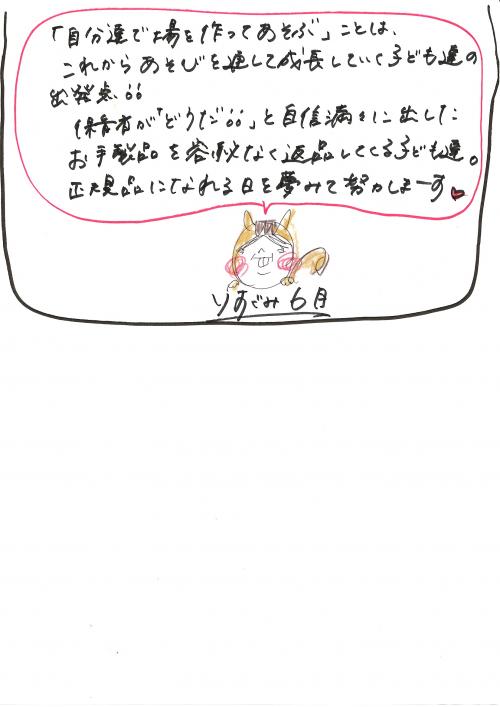 「自分達で場を作ってあそぶ」ことは、
これからあそびを通して成長していく子ども達の
出発点!!
保育者が「どうだ!!」と自信満々に出した
お手製品を容赦なく返品してくる子ども達。
正規品になれる日を夢みて努力しまーす
りすぐみ6月